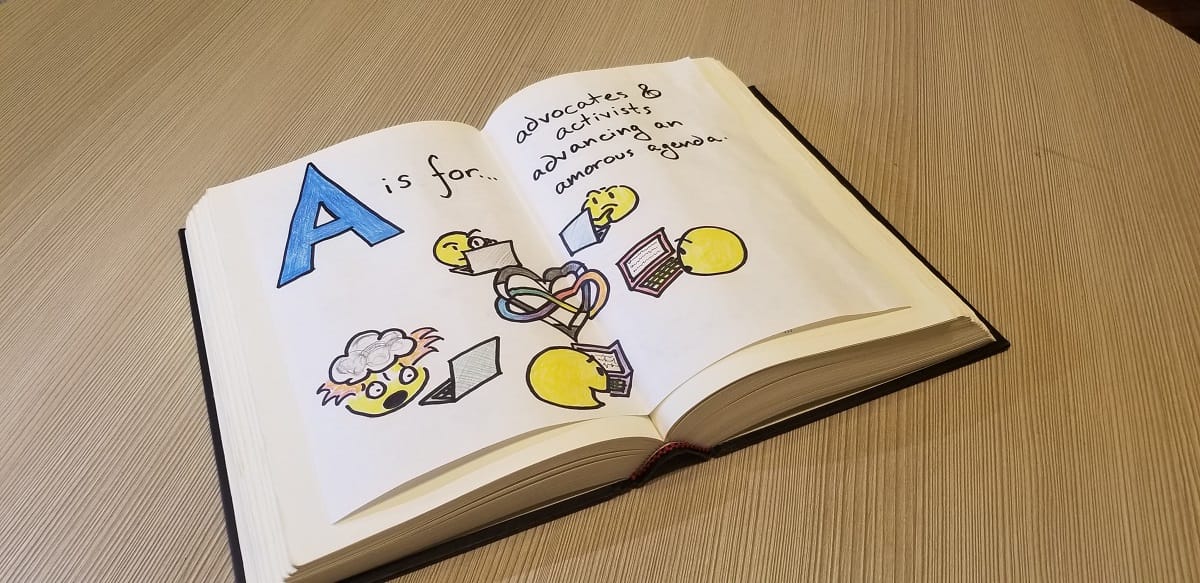 A is for...
advocates &
activists
advancing an
amorous agenda.